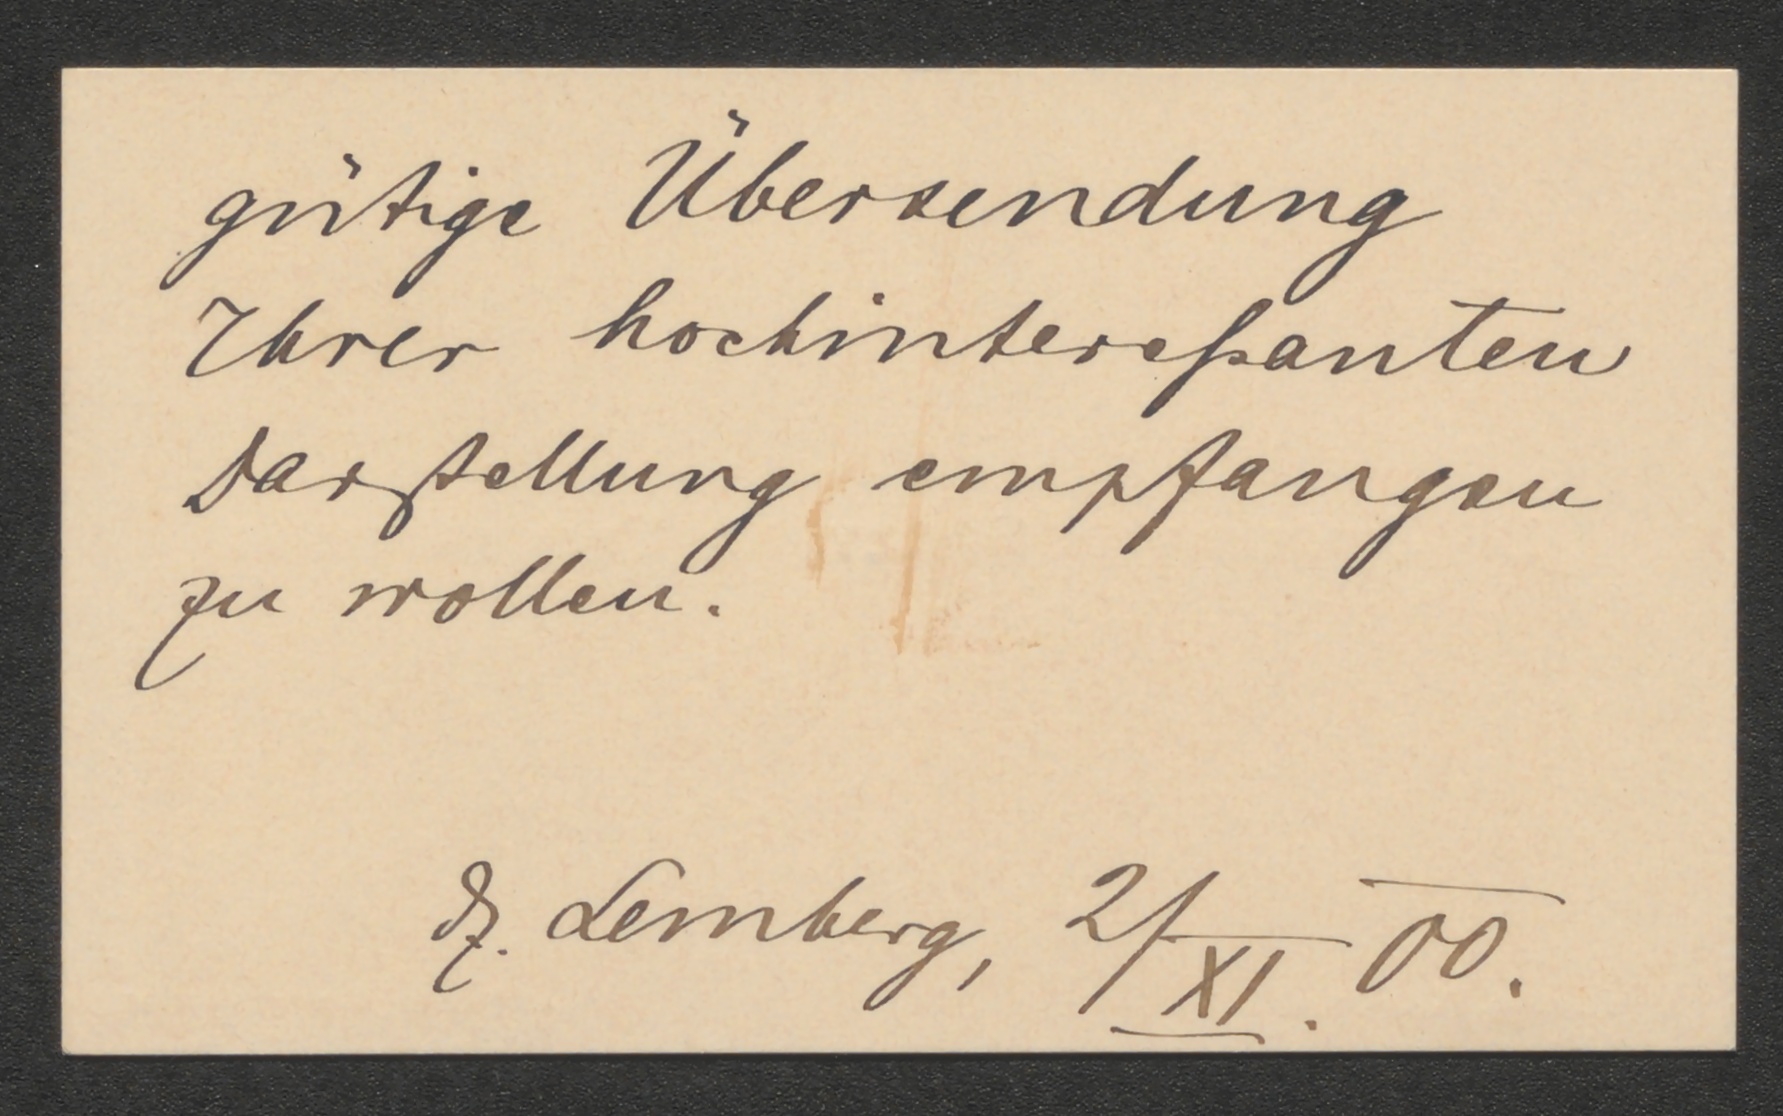 gütige Übersendung
Ihrer hochintereßanten
Darstellung empfangen
zu wollen.
Lemberg, 2/XI. 00.